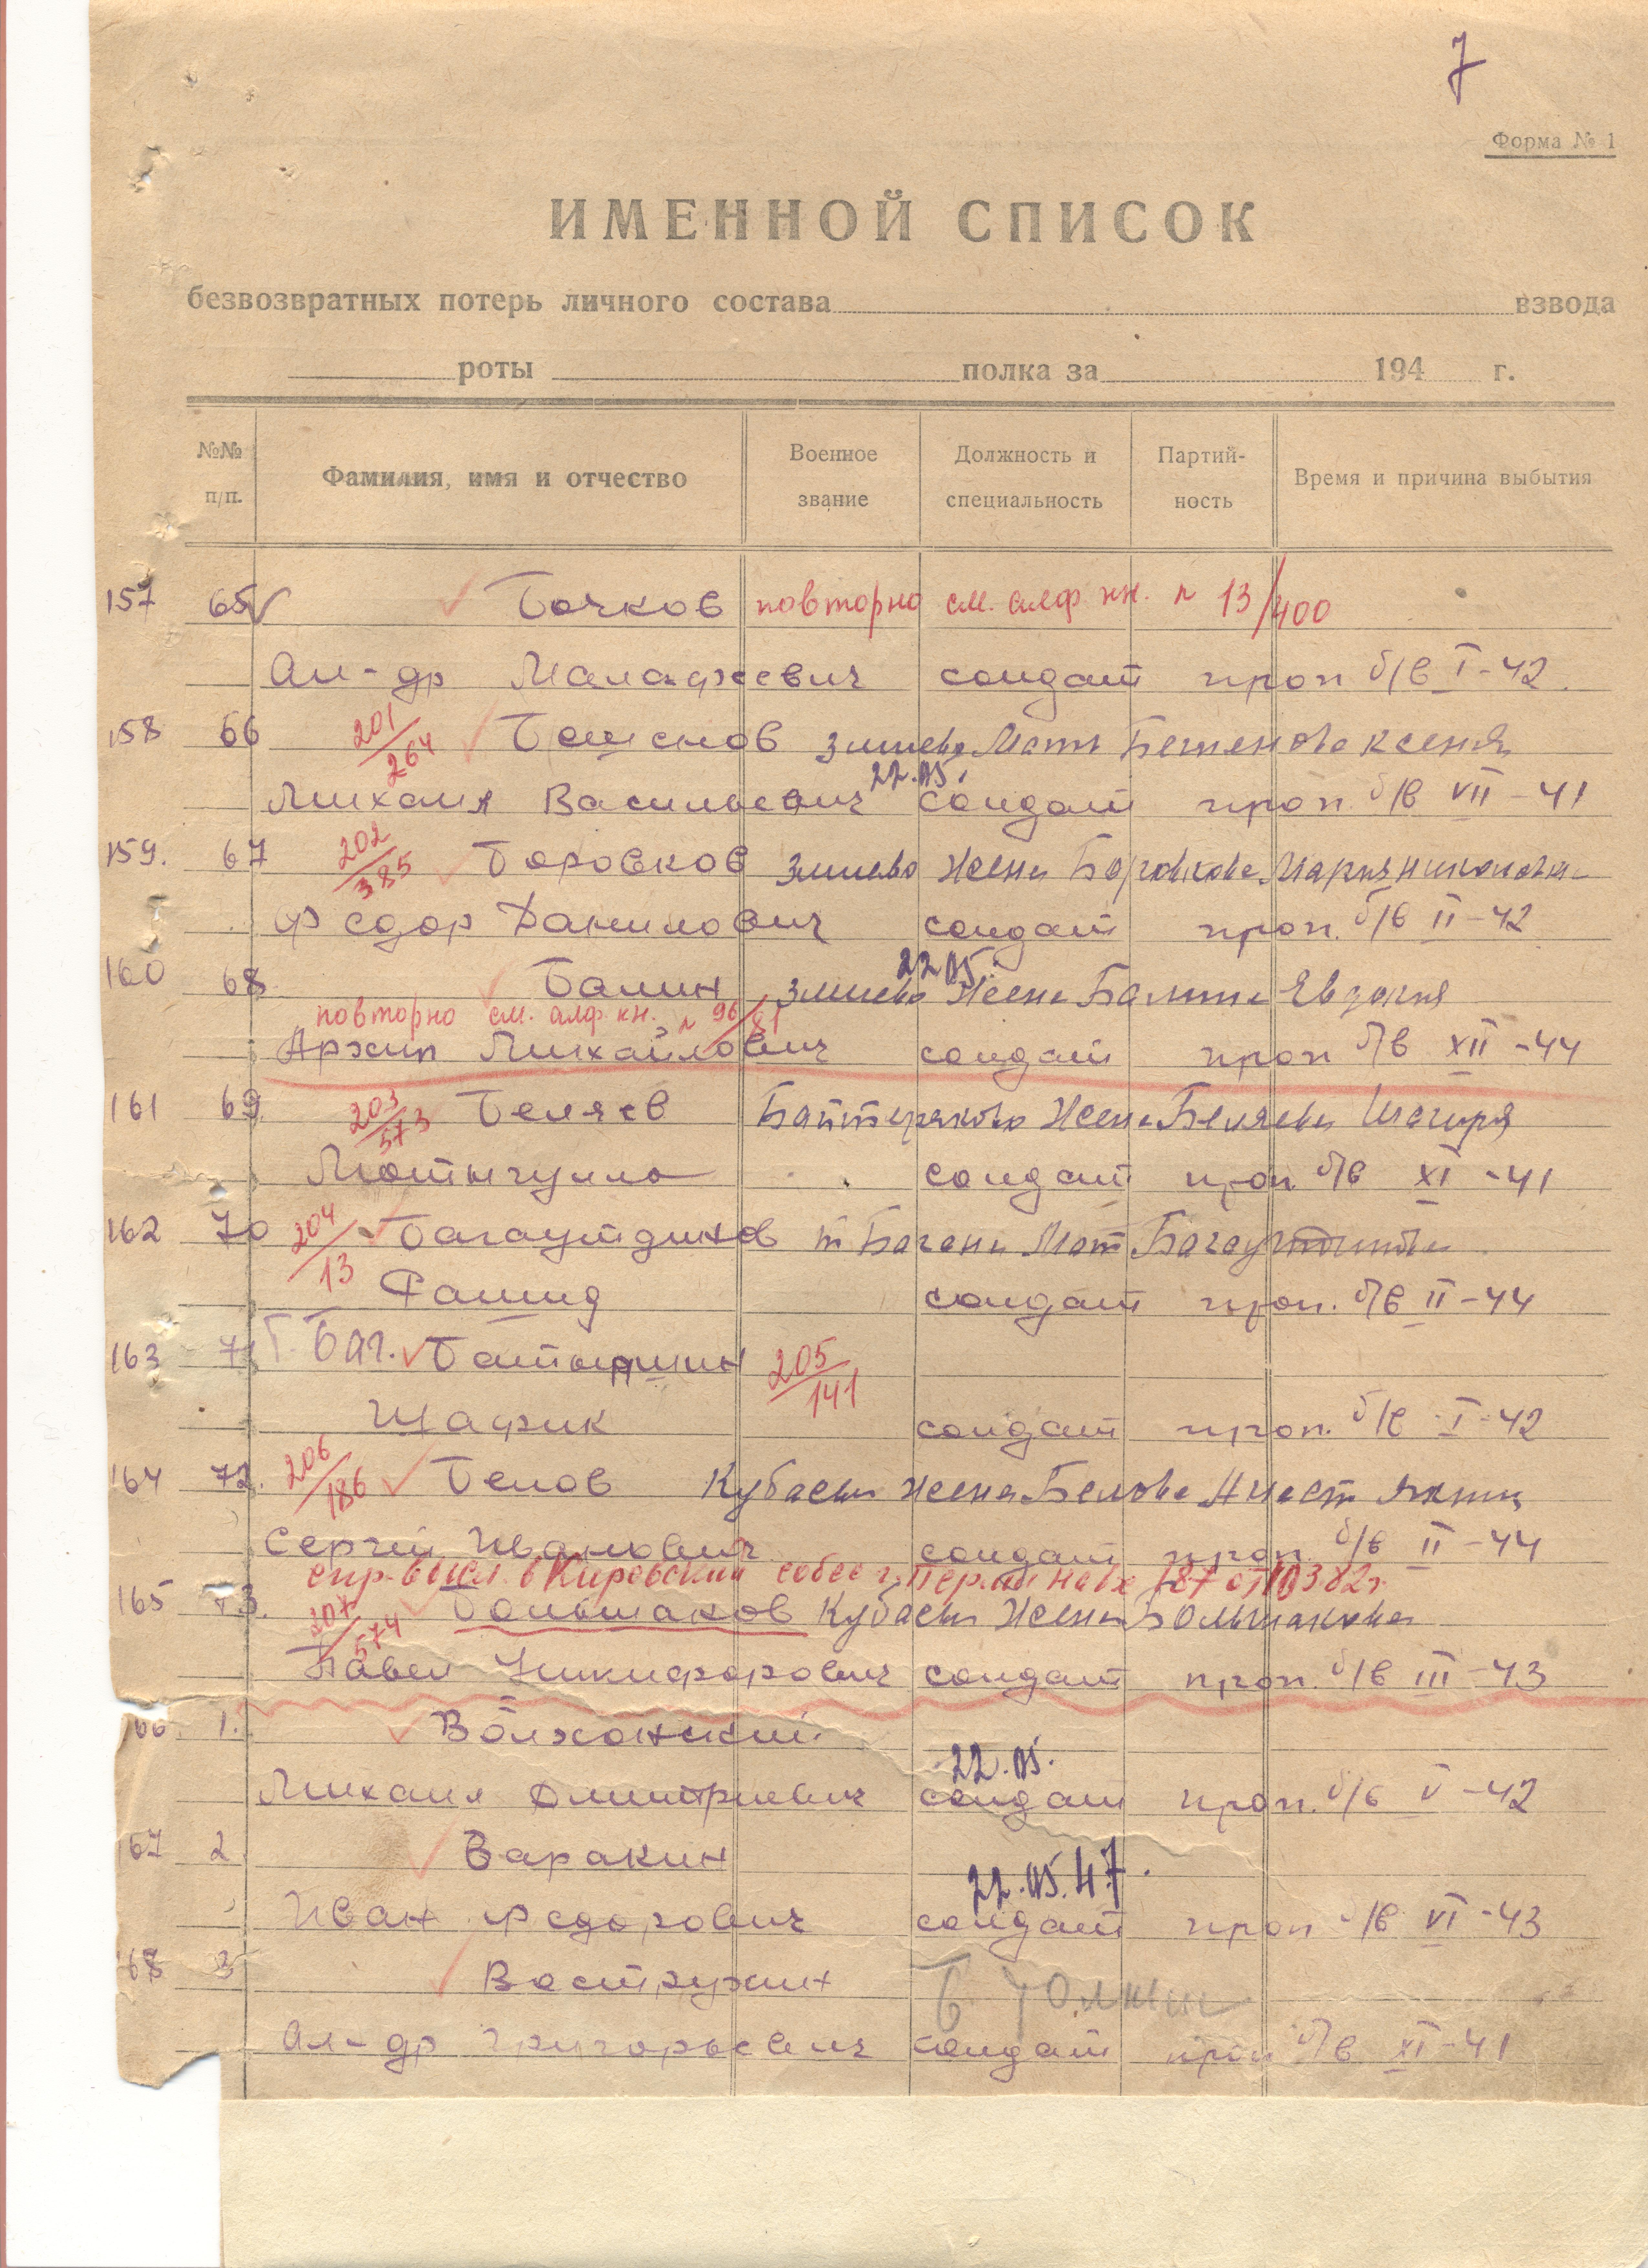 7
Форма № 1
ИМЕННОЙ СПИСОК
безвозвратных потерь личного состава взвода
роты полка за 194 г.
№№ п/п. Фамилия, имя и отчество Военное звание Должность и специальность Партий-ность Время и причина выбытия
157 65 Бочков повторно см. алф. кн. № 13/400
Ал-др Малафеевич солдат проп б/в I-42.
158 66 201/264 Бешенов Змиево Мать Бешенова Ксения
22.05.
Михаил Васильевич солдат проп. б/в VII-41
159. 67 202/385 Боровков Змиево Жена Боровкова Мария
Федор Данилович солдат проп. б/в II-42
22 05.
160 68 Балин Змиево Жена Балина Евдокия
повторно см. алф. кн. № 96/81
Архип Михайлович солдат проп б/в XII-44
161 69. 203/573 Беляев Жена Беляева
солдат проп б/в XI-41
162 70 204/13 Багаутдинов Мат
солдат проп. б/в II-44
163 71 Баг. 205/141
Шафик солдат проп. б/в I-42
164 72. 206/186 Белов Жена Белова
Сергей Иванович солдат проп. б/в II-44
спр. высл. в Кировский собес г. Перми
165 73. 207/574 Большаков Жена Большакова
Павел Никифорович солдат проп. б/в III-43
66. 1. Волжанский
22.05.
Михаил Дмитриевич солдат проп. б/в V-42
67 2 Варакин
22.05.47.
Иван Федорович солдат проп б/в VI-43
68 3 Вострухин
Ал-др Григорьевич солдат проп б/в XI-41